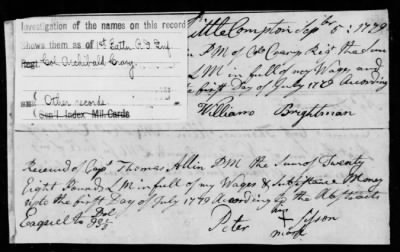 Investigation of the names on this record
Shows them as of 1st Battn R I Inf
Regt Col Archibald Crary
Other records
Gen'l Index Mil. Cards
Little Compton Sep.br 5: 1779
PM of Col Crary Regt the Sum
LM in full of my Wage and
the first Day of July 1779 According
William Brightman
Receivd of Capt Thomas Allin PM the Sum of Twenty
Eight Pounds LM in full of my Wages & Subsistance Money
upto the first Day of July 1779 According to the Abstracts
Eaquel to Dol
Peter his Sisson
mark